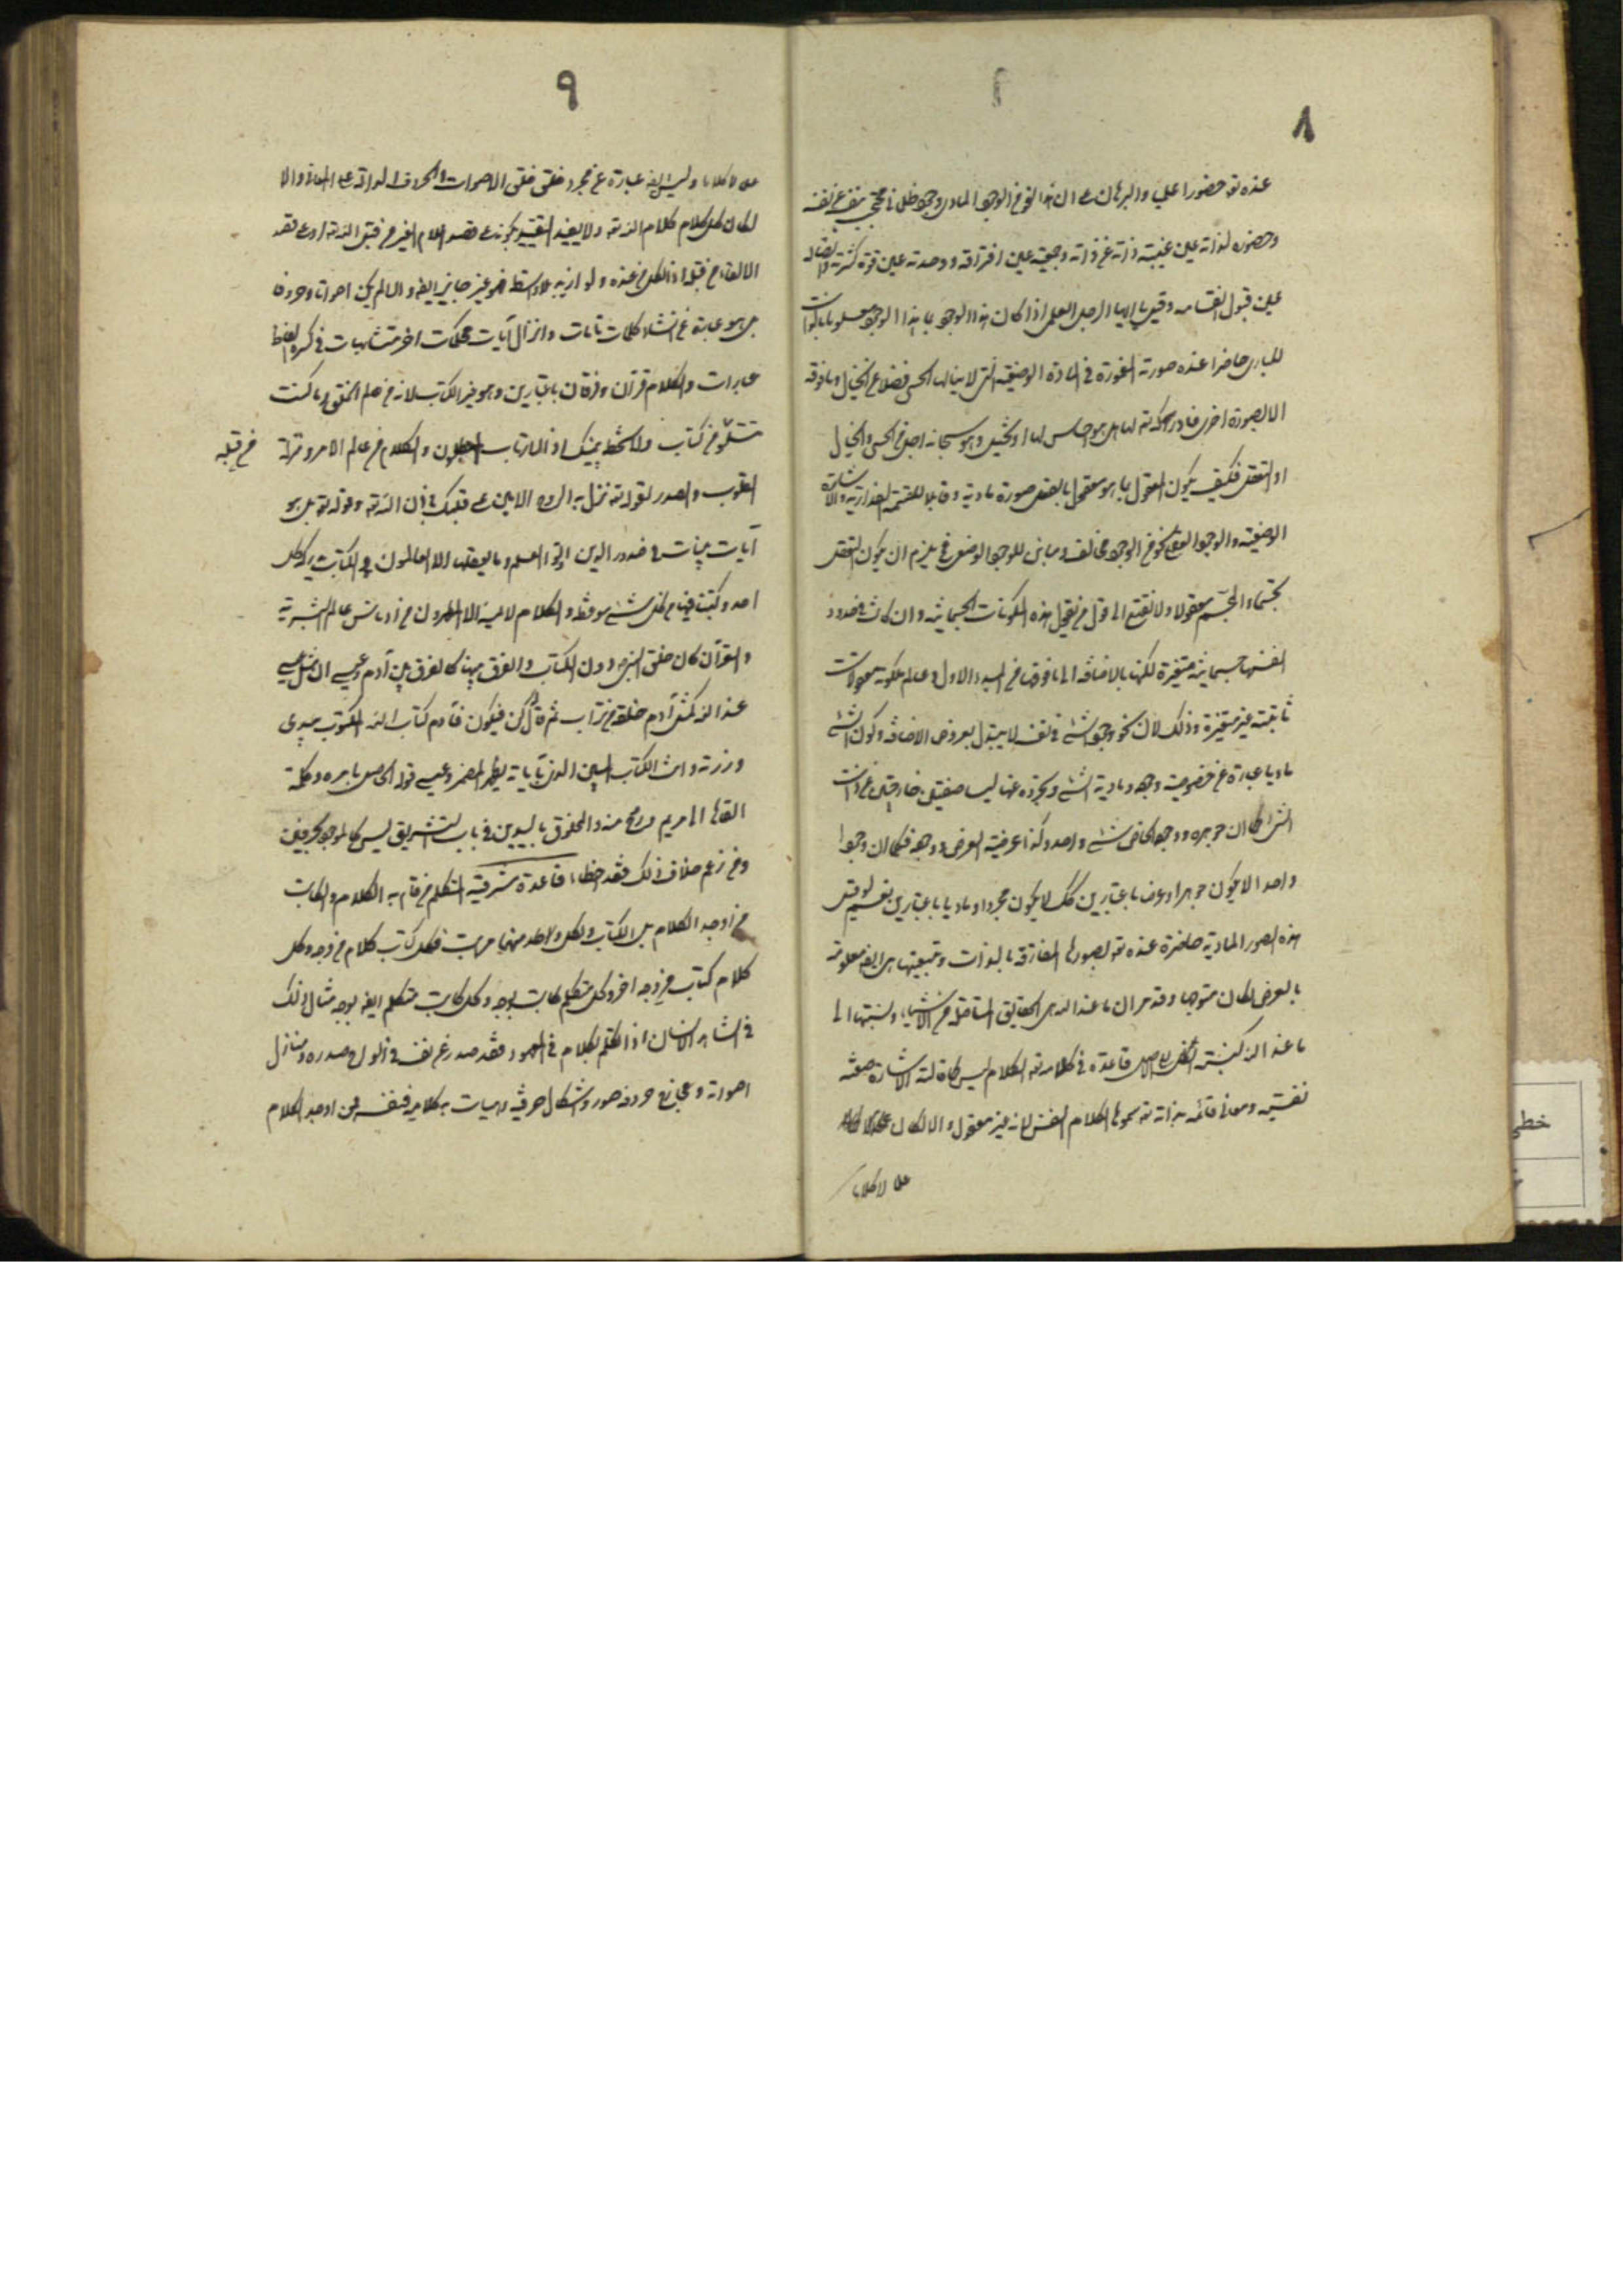 ٨
عنده تع حضورا علمي والبرهان على ان هذا النحو من الوجود المادي وجود ظلماني محتجب بنفسه عن نفسه
وحضوره لذاته عين غيبة ذاته عن ذاته وجمعيته عين افتراقه ووحدته عين قوة كثرته واتصاله
عين قبول انقسامه وقيل يا ايها الرجل العلمي اذا كان هذا الوجود بما هذا الوجود معلوما بالذات
للباري حاضرا عنده صورته المغمورة في المادة الوضعية التي لا ينالها الحس فضلا عن الخيال وما فوقه
الا بصورة اخرى فادراكه تع لها هل هو احساس لها او تخيل وهو سبحانه اجل من الحس والخيال
او التعقل فكيف يكون المعقول بما هو معقول بالفعل صورة مادية وقابلا للقسمة المقدارية والاشارة
الوضعية والوجود العقلي نحو من الوجود مخالف ومباين للوجود الوضعي فيلزم ان يكون التعقل
تجسما والمجسم معقولا ولا تقنع الى قول من يقول هذه المكونات الجسمانية وان كانت في حدود
انفسها جسمانية متغيرة لكنها بالاضافة الى ما فوقها من المبدء الاول وعالم ملكوته معقولات
ثابتة غير متغيرة وذلك لان نحو وجود الشئ في نفسه لا يتبدل بعروض الاضافة وكون الشئ
ماديا عبارة عن خصوصية وجوده ومادية الشئ وتجرده عنها ليسا صفتين خارجتين عن ذات
الشئ كما ان جوهره ووجوده الخاص شئ واحد وكذا عرضية العرض ووجوده فكما ان وجودا
واحدا لا يكون جوهرا وعرضا باعتبارين كك لا يكون مجردا وماديا باعتبارين نعم لو قيل
هذه الصور المادية حاضرة عنده تع بصورها المفارقة بالذات وبتبعيتها هي ايضا معلومة
بالعرض لكان متوجها وقد مر ان ما عند الله هي الحقايق المتاصلة من الاشياء ونسبتها الى
ما عند الله كنسبة الظل الى الاصل قاعدة في كلامه تع الكلام ليس كما قالته الاشاعرة صفة
نفسية ومعاني قائمة بذاته تع سموها الكلام النفسي لانه غير معقول والا لكان
علما لا كلاما
٩
علما لا كلاما وليس ايضا عبارة عن مجرد خلق الاصوات والحروف الدالة على المعاني والا
لكان كل كلام كلام الله تع ولا يفيد التقييد بكونه على قصد اعلام الغير من قبل الله تع او على قصد
الالقاء من قبله اذ الكل من عنده ولو اريد به بلا واسطة فهو غير جايز ايضا والا لم يكن اصواتا وحروفا
بل هو عبارة عن انشاء كلمات تامات وانزال آيات محكمات واخر متشابهات في كسوة الفاظ
عبارات والكلام قرآن وفرقان باعتبارين وهو غير الكتاب لانه من عالم الخلق وما كنت
تتلو من كتاب ولا تخطه بيمينك اذا لارتاب المبطلون والكلام من عالم الامر ومنزله
من قبله
القلوب والصدور لقوله تع نزل به الروح الامين على قلبك باذن الله تع وقوله تع بل هو
آيات بينات في صدور الذين اوتوا العلم وما يعقلها الا العالمون والكتاب يدركه كل
احد وكتبنا فيها من كل شئ موعظة والكلام لا يمسه الا المطهرون من ادناس عالم البشرية
والقرآن كان خلق النبي دون الكتاب والفرق بينهما كالفرق بين آدم وعيسى ان مثل عيسى
عند الله كمثل آدم خلقه من تراب ثم قال له كن فيكون فآدم كتاب الله المكتوب بيدي
قدرته وانت الكتاب المبين الذي بآياته يظهر المضمر وعيسى قوله الحاصل بامره وكلمته
القاها الى مريم وروح منه والمخلوق باليدين في باب التشريف ليس كالموجود بحرفين
ومن زعم خلاف ذلك فقد اخطاء قاعدة مشرقية المتكلم من قام به الكلام والكاتب
من اوجد الكلام يعني الكتاب ولكل واحد منهما مراتب فكل كتاب كلام من وجه وكل
كلام كتاب من وجه اخر وكل متكلم كاتب بوجه وكل كاتب متكلم ايضا بوجه مثال ذلك
في الشاهد الانسان اذا تكلم بكلام في المعهود فقد صدر عن نفسه في الواح صدره ومنازل
اصواته ومخارج حروفه صور واشكال حرفية وهيات كلامية فنفسه ممن اوجد الكلام
خطي